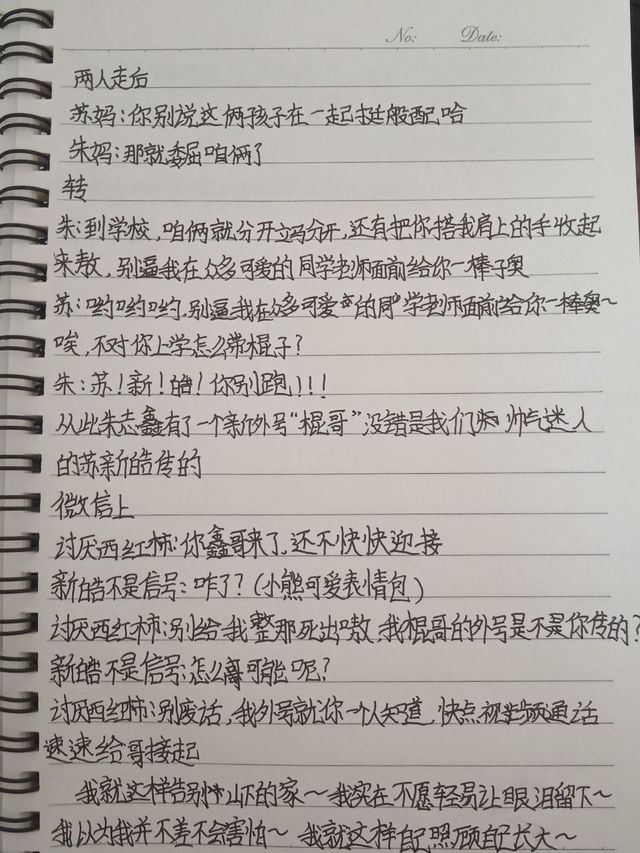 No:          Date:
两人走后
苏妈:你别说这俩孩子在一起挺般配哈
朱妈:那就委屈咱俩了
转
朱:到学校,咱俩就分开立马分开,还有把你搭我肩上的手收起
来敖,别逼我在众多可爱的同学老师面前给你一棒子奥
苏:哟哟哟,别逼我在众多可爱的同学老师面前给你一棒奥~
唉,不对你上学怎么带棍子?
朱:苏!新!皓!你别跑!!!
从此朱志鑫有了一个新外号“棍哥”没错是我们 帅气迷人
的苏新皓传的
微信上
讨厌西红柿:你鑫哥来了,还不快快迎接
新皓不是信号:咋了?(小熊可爱表情包)
讨厌西红柿:别给我整那死出嗷,我棍哥的外号是不是你传的?
新皓不是信号:怎么 可能呢?
讨厌西红柿:别废话,我外号就你一个人知道,快点视频通话
速速给哥接起
我就这样告别 山下的家~我实在不愿轻易让眼泪留下~
我以为我并不差不会害怕~ 我就这样自己照顾自己长大~